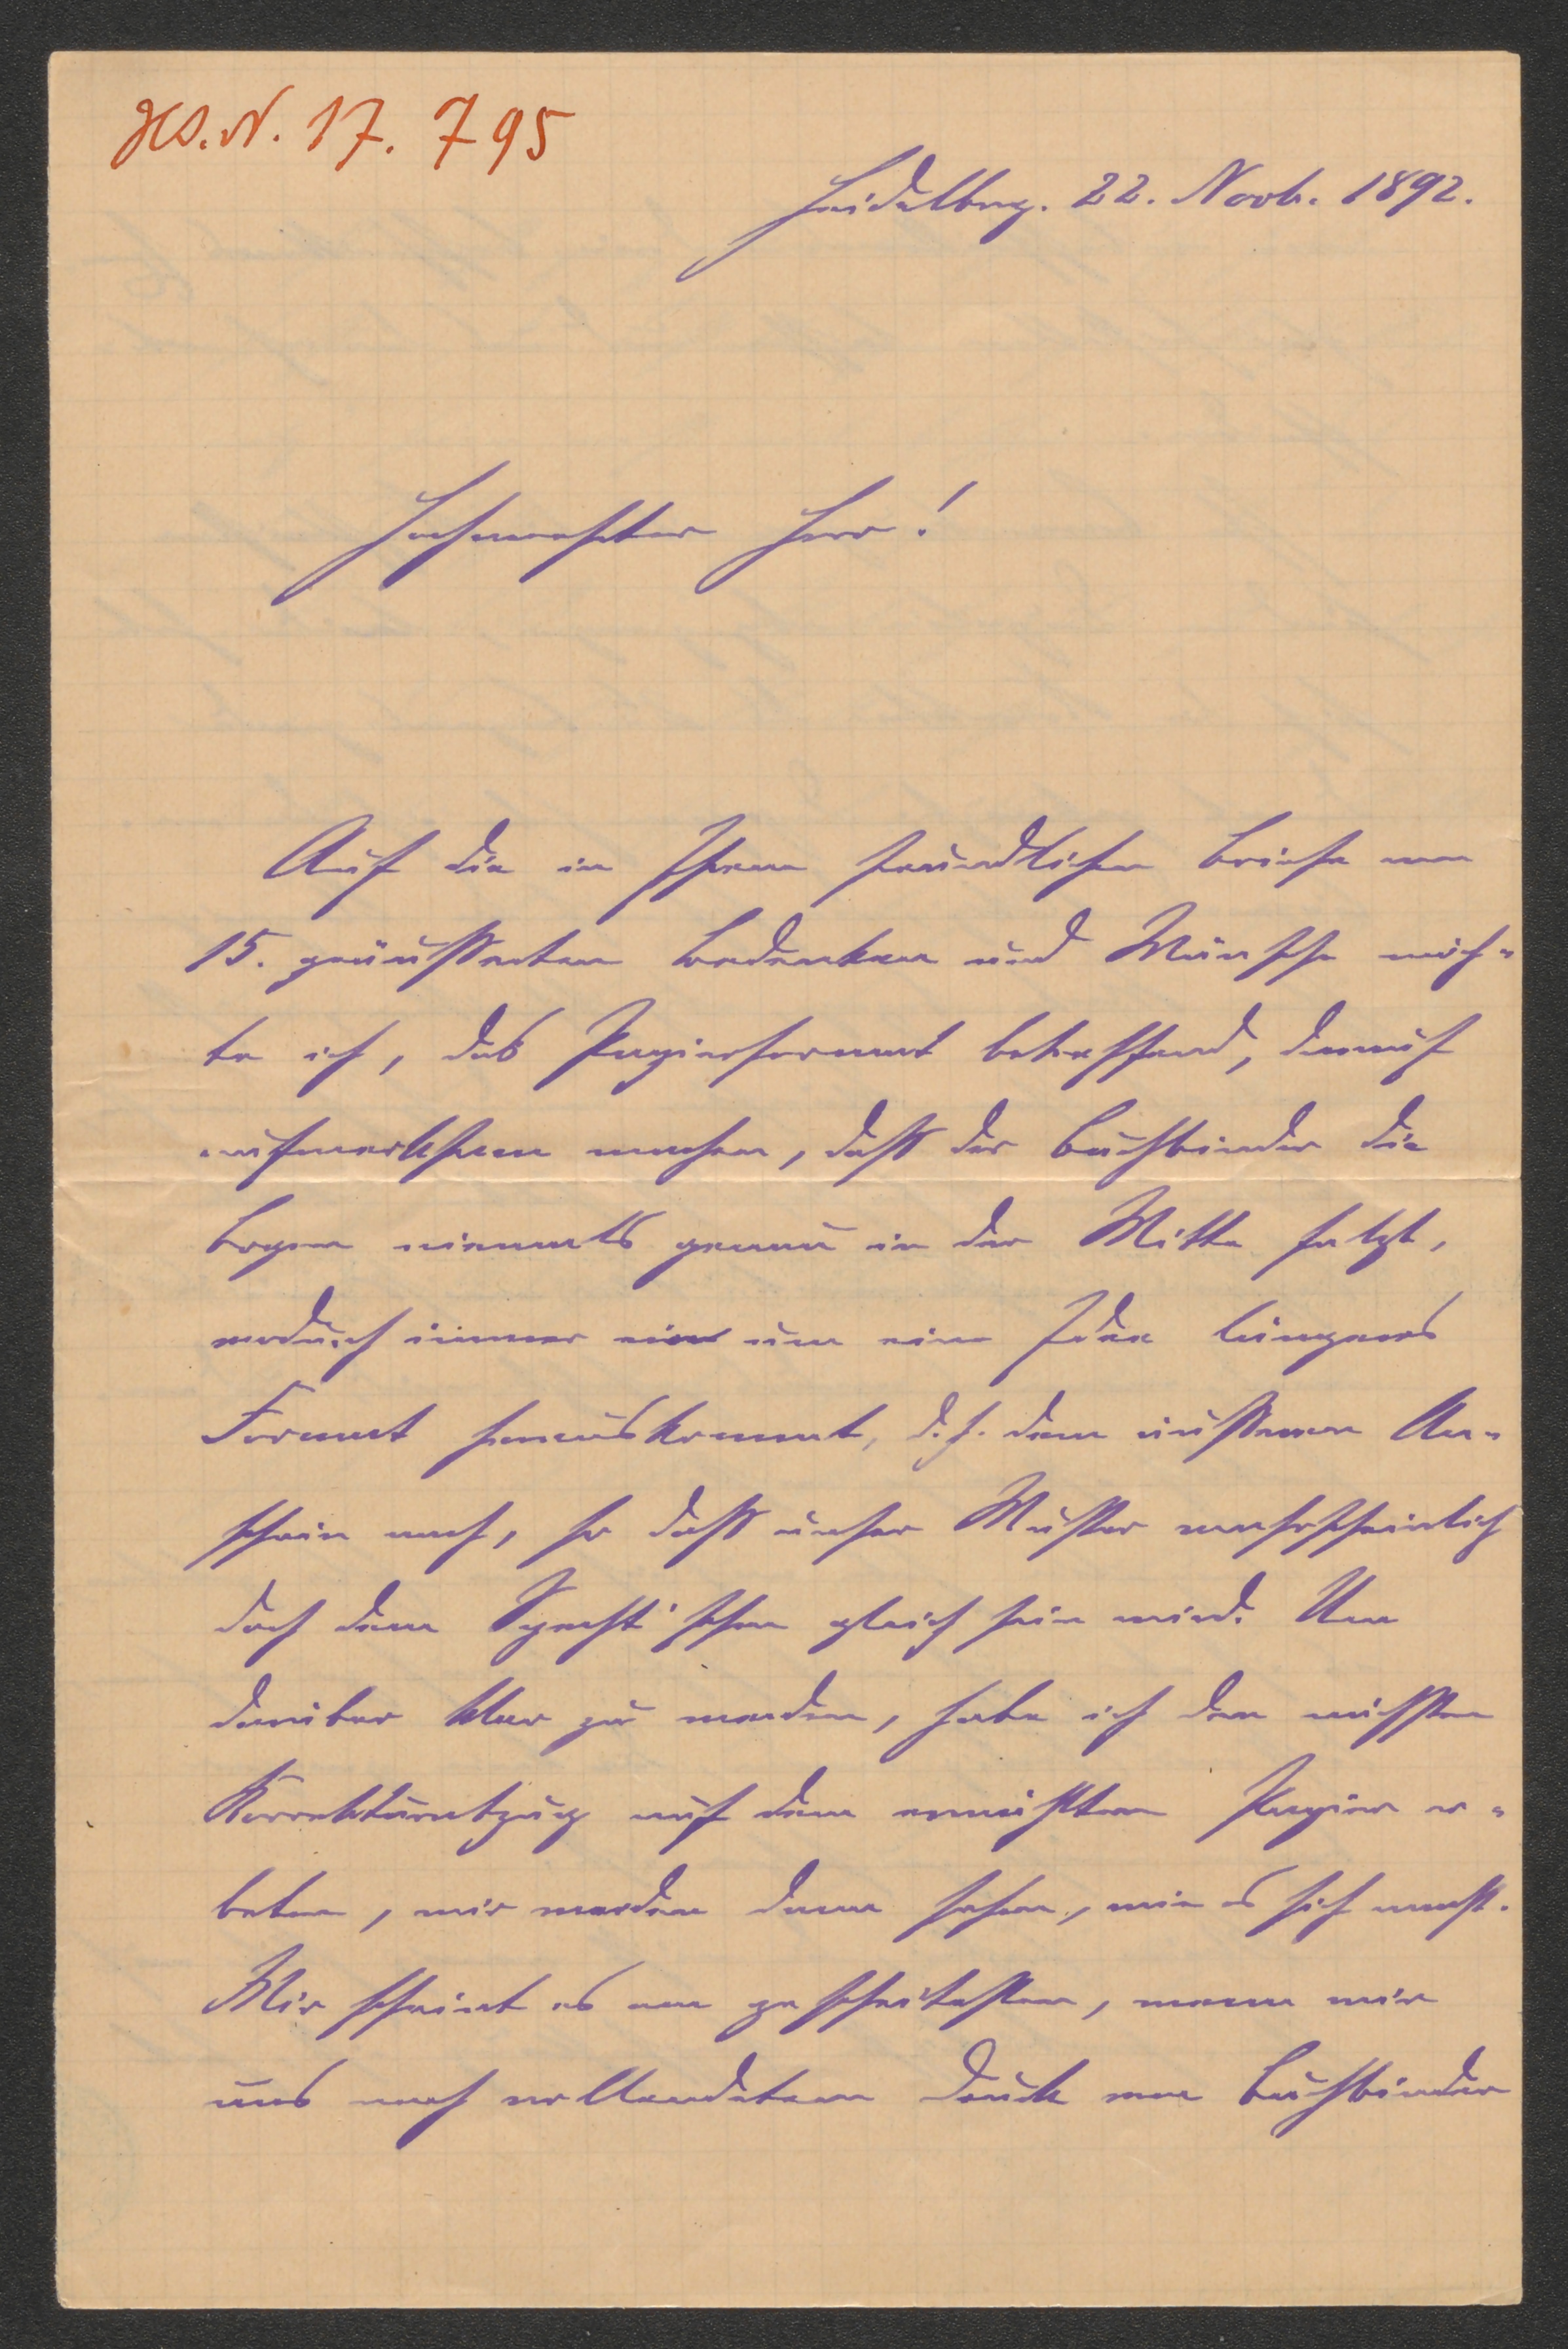 HS.N. 17.795
Heidelberg. 22. Novb. 1892.
Hochverehrter Herr!
Auf die in Ihrem freundlichen Briefe vom
15. geäußerten Bedenken und Wünsche möch-
te ich, das Papierformat betreffend, darauf
aufmerksam machen, daß der Buchbinder die
Bogen niemals genau in der Mitte falzt,
wodurch immer ein um eine Idee längeres
Format herauskommt, d.h. dem äußeren An-
schein nach, so daß unser Muster wahrscheinlich
doch dem Specht'schen gleich sein wird. Um
darüber klar zu werden, habe ich den nächsten
Korrekturabzug auf dem erwählten Papier er-
beten, wir werden dann sehen, wie es sich macht.
Mir scheint es am gescheitesten, wenn wir
uns nach vollendetem Druck vom Buchbinder